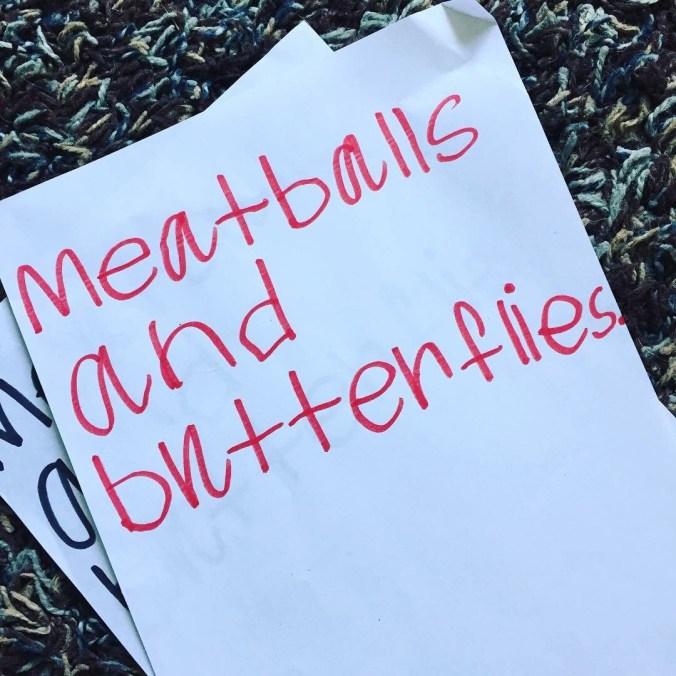 meatballs
and
butterflies.